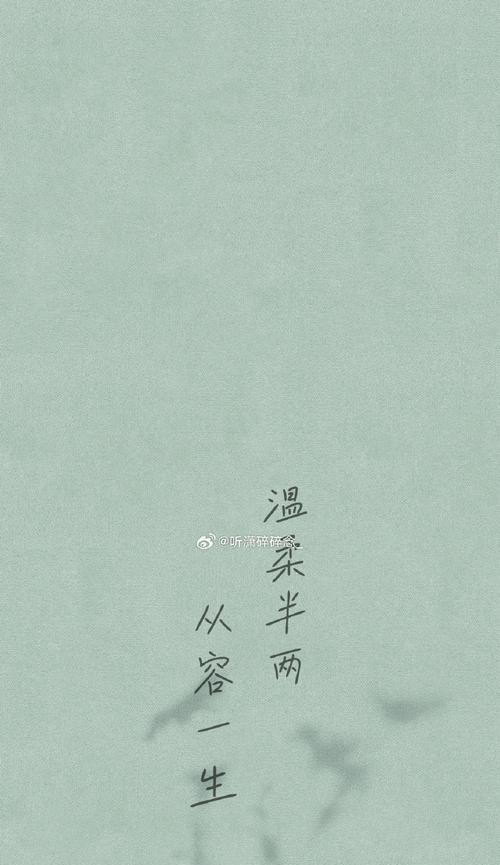 温柔半两
从容一生
@听潇碎碎念_